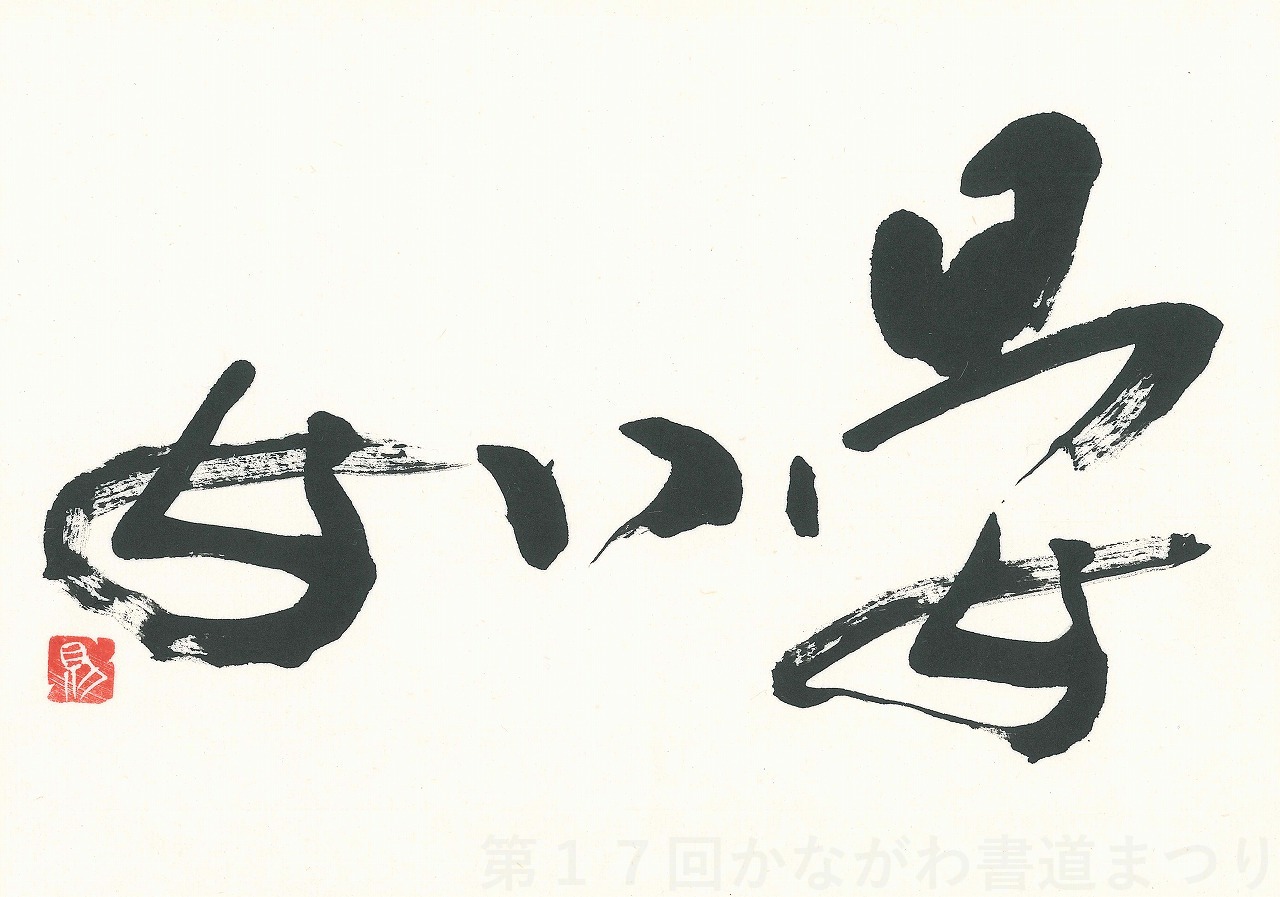 晏如
第１７回かながわ書道まつり